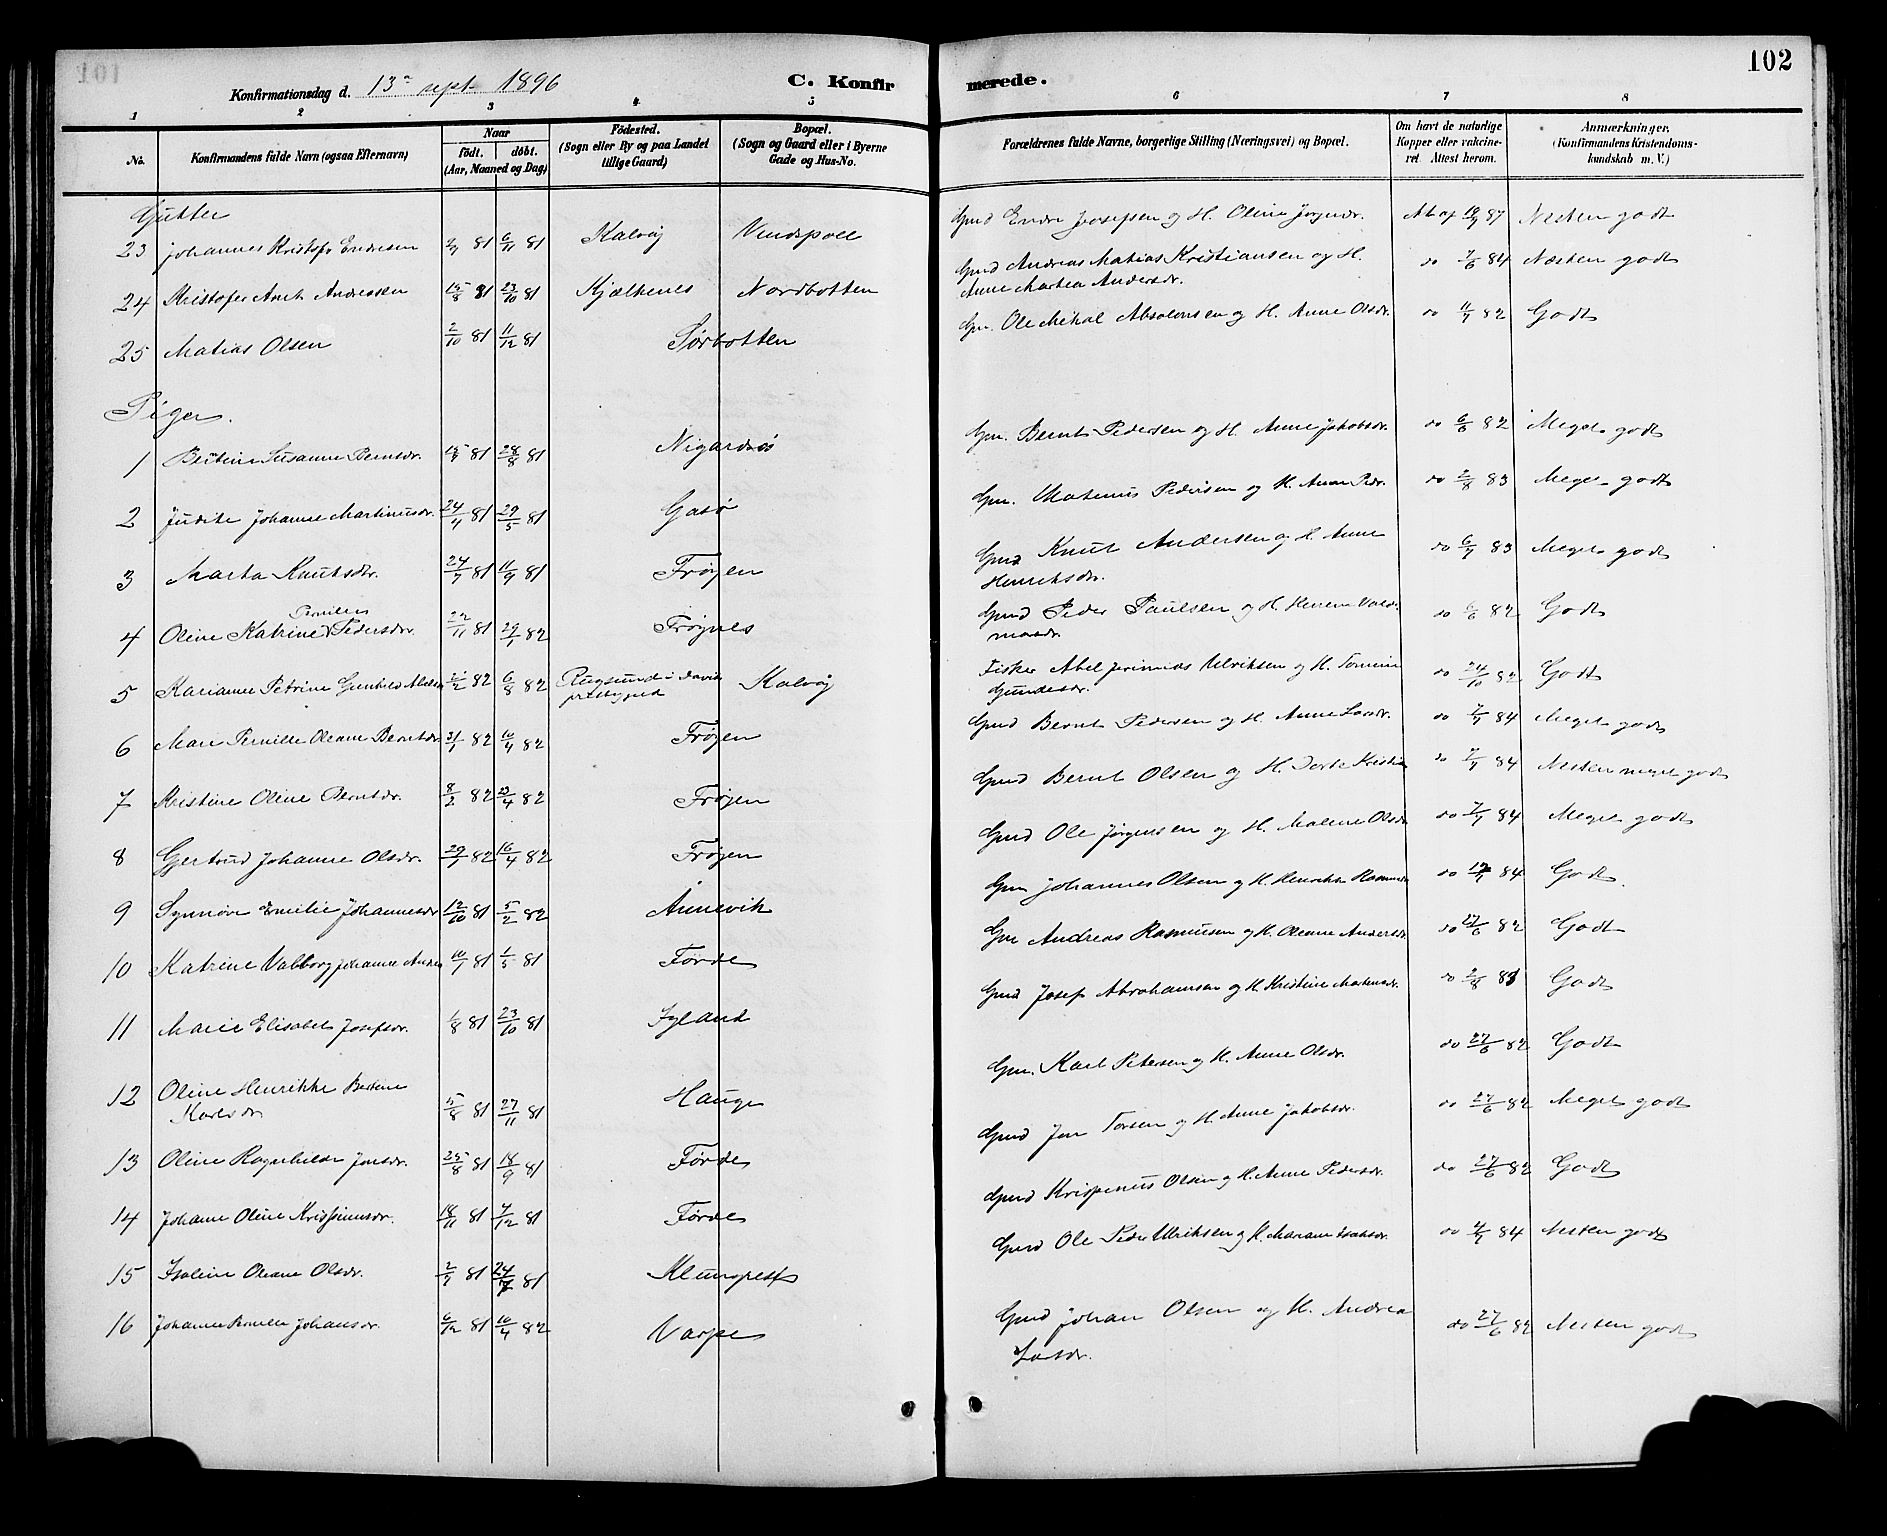 102
Konfirmationsdag d. 13de sept. 1896 C. Konfirmerede.
1 2 3 4 5 6 7 8
No.
Konfirmandens fulde Navn (ogsaa Efternavn)
Naar
født. døbt.
(Aar, Maaned og Dag)
Fødested.
(Sogn eller By og paa Landet
tillige Gaard)
Bopæl.
(Sogn og Gaard eller i Byerne
Gade og Hus-No.
Forældrenes fulde Navne, borgerlige Stilling (Næringsvei) og Bopæl.
Om havt de naturlige
Kopper eller vakcine-
ret. Attest herom.
Anmærkninger.
(Konfirmandens Kristendoms-
kundskab m. V.)
Gutter
23 Johannes Kristofr Endresen 81 6/11 81 Kalvøg Vindspoll Gmd Endre Josefsen og H. Oline Jørgndr. At af 87 Næsten godt
24 Kristofer Anch Andreassen 15/8 81 23/10 81 Kjælkenes Nordbotten Gmd Andreas Matias Kristiansen og H.
Anne Martea Andersdr. do 7/6 84 Næsten godt
25 Matias Olsen 2/10 81 11/12 81 Sørbotten Gm. Ole Mikal Absalonsen og H. Anne Olsdr. do 11/7 82 Godt
Piger.
1 Bertine Susanne Berntsdr. 81 28/8 81 Nigardsøs Gm. Bernt Pedersen og H. Anne Jakobsdr. do 6/6 82 Meget godt
2 Judite Johanne Martinusdr. 24/4 81 29/5 81 Gasø Gm. Matinus Pedersen og H. Anne Pedr. do 2/8 83 Meget godt
3 Marta Knutsdr. 24/7 81 11/9 81 Frøyen Gmd Knut Andersen og H. Anne
Henriksdr. do 6/7 83 Meget godt
4 Oline Katrine Pernille Pedersdr. 22/11 81 29/1 82 Frøynes Gmd Peder Paulsen og H. Herrene Valde-
marsdr. do 6/6 82 Godt
5 Karianne Petrine Gunhild 82 6/8 82 Rugsund i Davik
præstegjeld Kalvøg Fisker Abel Jerimias Ulriksen og H. Tomine
Gundesdr. do 24/10 82 Godt
6 Mari Pernille Oleane Berntsdr. 31/1 82 10/4 82 Frøyen Gmd Bernt Pedersen og H. Anne Larsdr. do 7/7 84 Meget godt
7 Kristine Oline Berntsdr. 8/2 82 23/4 82 Frøyen Gmd Bernt Olsen og H. Dorte Kristia do 7/7 84 Næsten meget godt
8 Gjertrud Johanne Olsdr. 29/1 82 16/4 82 Frøyen Gmd Ole Jørgensen og H. Malene Olsdr do 7/7 84 Meget godt
9 Synnøve Emilie Johannesdr 12/10 81 5/2 82 Annevik Gm Johannes Olsen og H. Henrikke Rasmusdr do 84 Godt.
10 Katrine Valborg Johanne Andrea 10/1 81 1/5 81 Førde Gm Andreas Rasmusen og H. Oleane Andersdr. do 27/6 82 Godt
11 Marie Elisabet Josefsdr. 1/8 81 23/10 81 Igland Gmd Josef Abrahamsen og H. Kristine Martinusdr. do 2/8 83 Godt
12 Oline Henrikke Bertine
Karlsdr 5/8 81 27/11 81 Hauge Gm. Karl Petersen og H. Anne Olsdr. do 27/6 82 Godt
13 Oline Ragnhilde Jonsdr. 25/8 81 18/9 81 Førde Gmd Jon Torsen og H. Anne Jakobsdr. do 27/6 82 Meget godt
14 Johanne Oline Krispinusdr. 18/11 81 7/12 81 Førde Gmd Krispenus Olsen og H. Anne Pedersdr. do 27/6 82 Godt
15 Isaline Oleane Olsdr. 2/7 81 24/7 81 Klungrest Gmd Ole Peder Ulriksen og H. Mariane Isaksdr. do 84 Næsten godt
16 Johanne Pernille Johansdr. 6/12 81 10/4 82 Varpe Gmd Johan Olsen og H. Andrea
Larsdr. do 27/6 82 Næsten godt